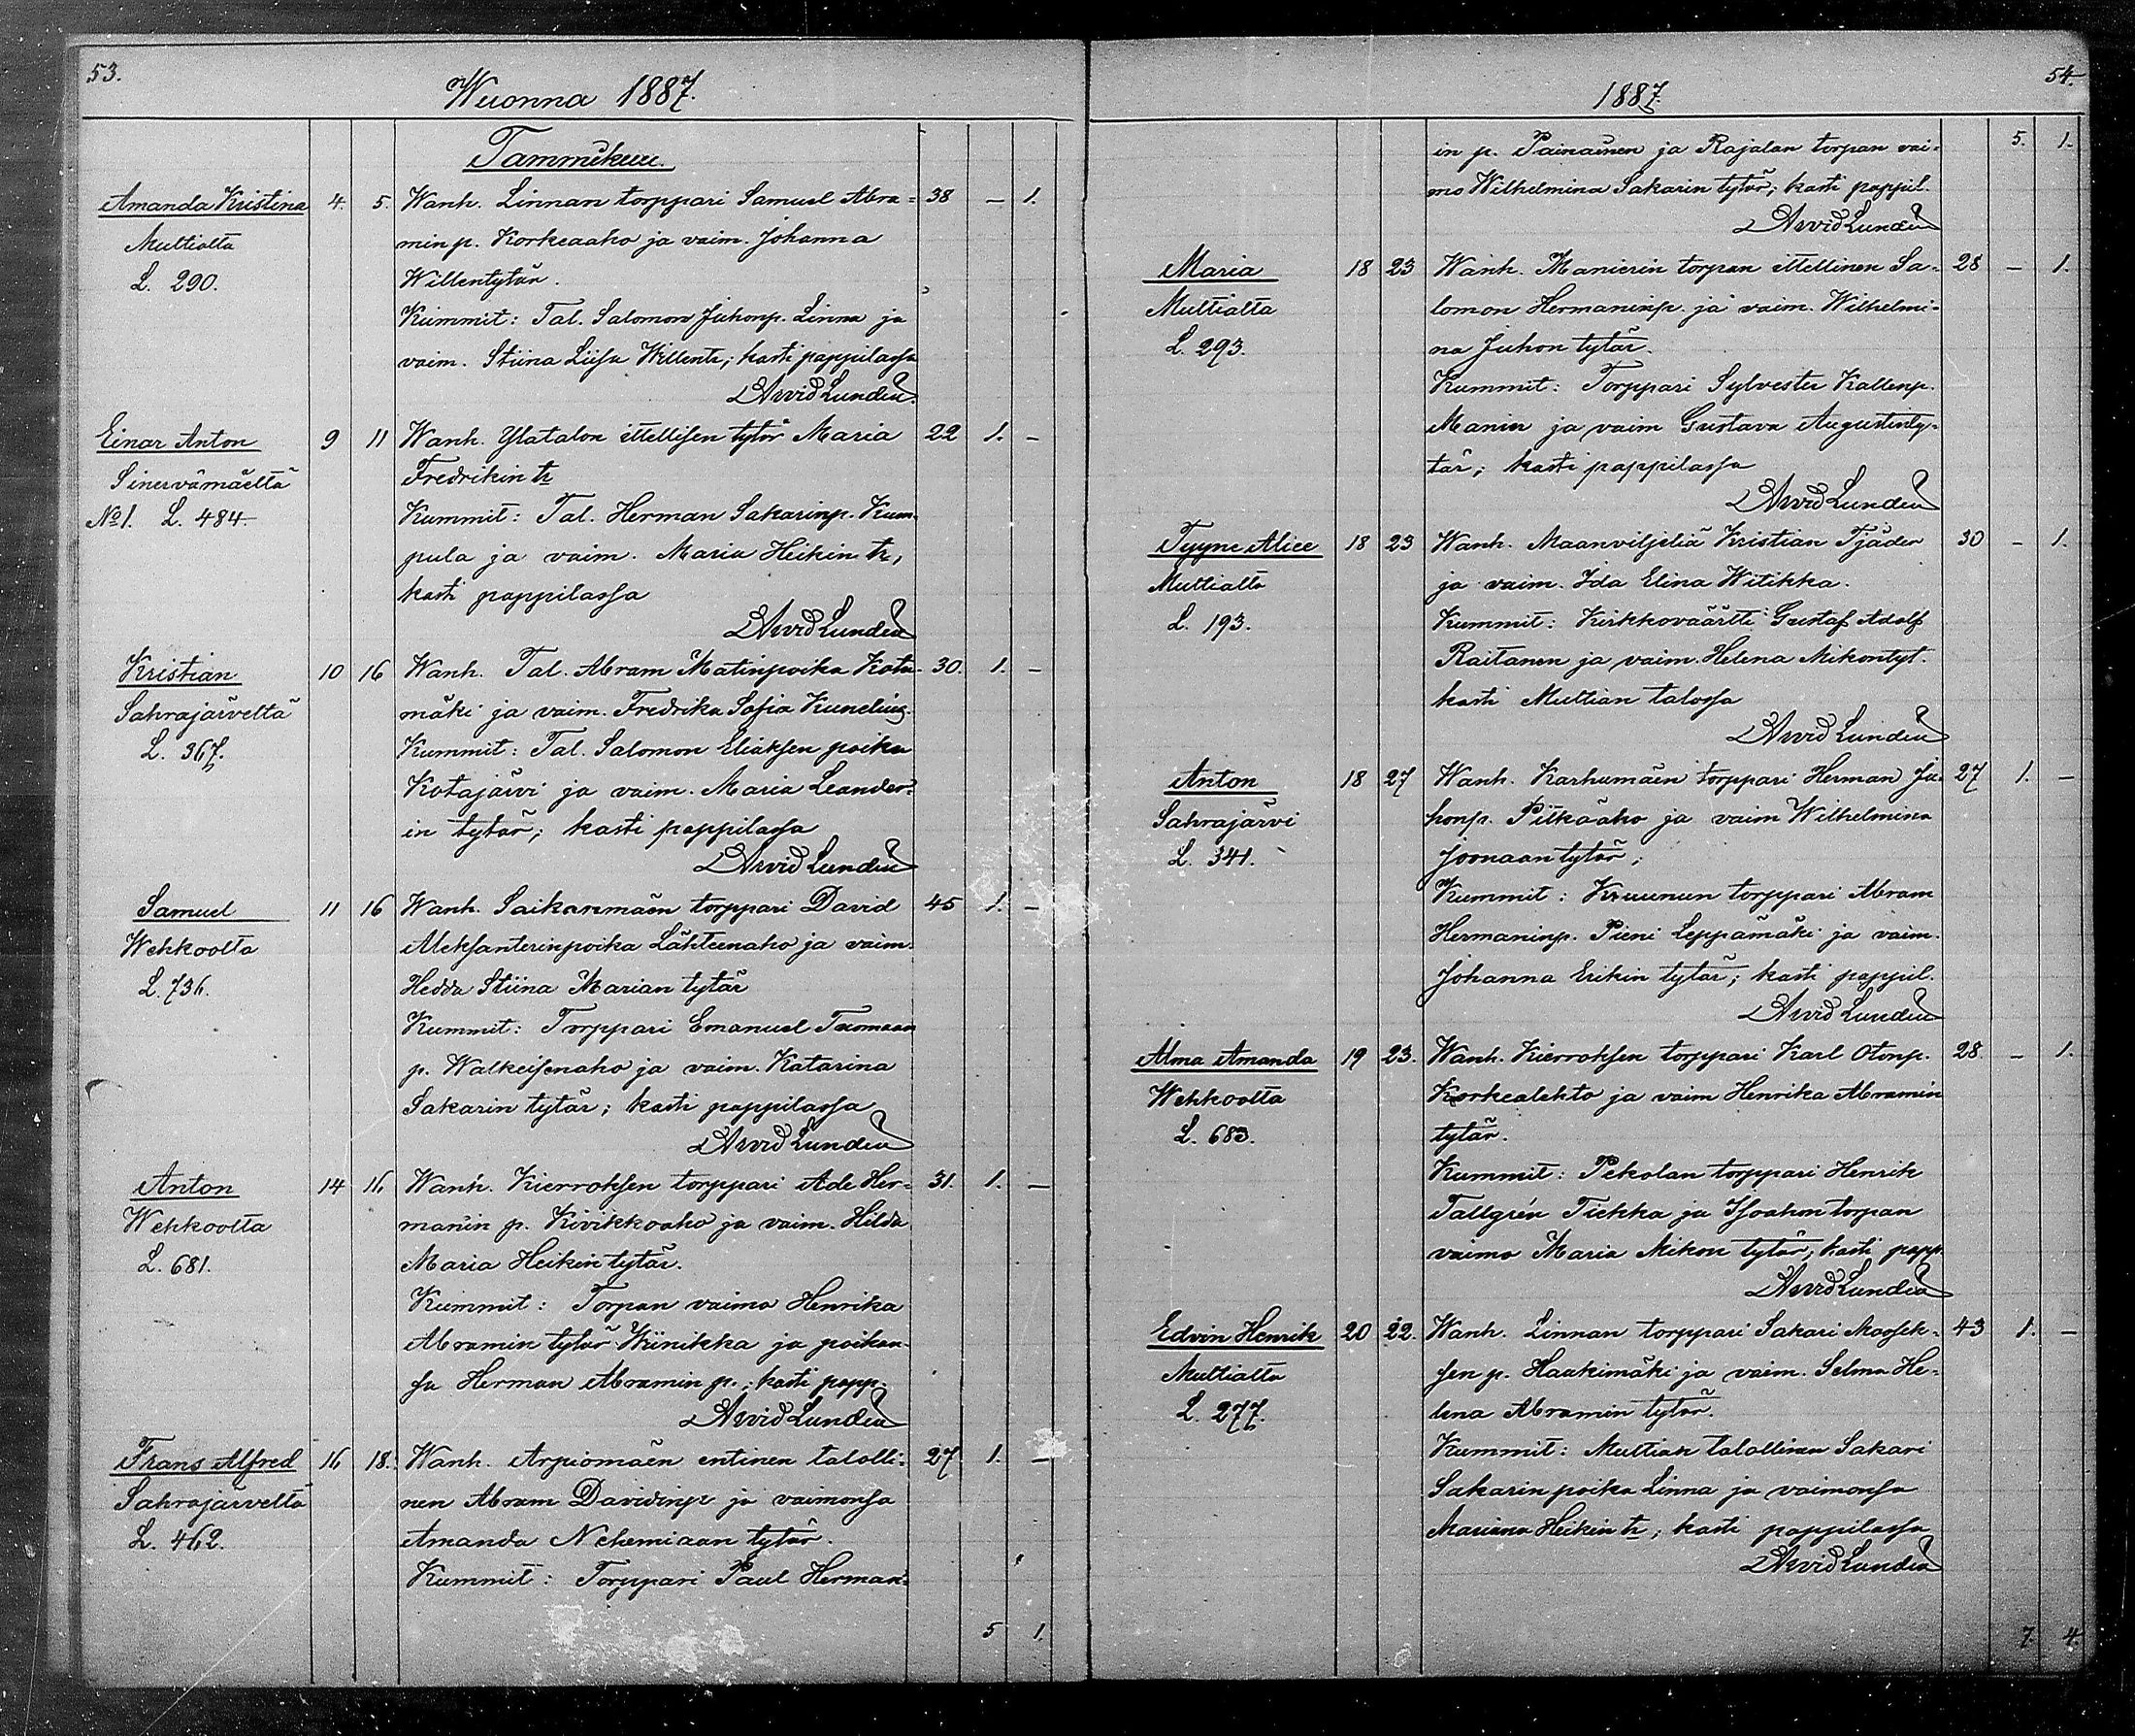 53.
Wuonna 1887.
Tammikuu.
Amanda Kristina 4. 5. Wanh. Linnan torppari Samuel Abra= 38 — 1.
Multialta min p. Korkeaaho ja vaim. Johanna
L. 290. Willentytär.
Kummit: Tal. Salomon Juhonp. Linna ja
vaim. Stiina Liisa Willentr; kasti pappilassa
Arvid Lundén
Einar Anton 9 11 Wanh. Ylatalon itellisen tytör Maria 22 1. —
Sinervämäeltä Fredrikin tr
No 1. L. 484. Kummit: Tal. Herman Sakarinp. Kum-
pula ja vaim. Maria Heikin tr,
kasti pappilassa
Arvid Lundén
Kristian 10 16 Wanh. Tal. Abram Matinpoika Kota- 30. 1. —
Sahrajärveltä mäki ja vaim. Fredrika Sofia Kunelius.
L. 367. Kummit: Tal. Salomon Eliaksen poika
Kotajärvi ja vaim. Maria Leander=
in tytär; kasti pappilassa
Arvid Lundén
Samuel 11 16 Wanh. Saikanmäen torppari David 45 1. —
Wehkoolta Aleksanterinpoika Lähteenaho ja vaim.
L. 736. Hedda Stiina Marian tytär
Kummit: Torppari Emanuel Tuomaan
p. Walkeisenaho ja vaim. Katarina
Sakarin tytär; kasti pappilassa
Arvid Lundén
Anton 14 16 Wanh. Kierroksen torppari Ade Her= 31. 1. —
Wehkoolta manin p. Kivikkoaho ja vaim. Hilda
L. 681. Maria Heikin tytär.
Kummit: Torpan vaimo Henrika
Abramin tytär Wiinikka ja poikan-
sa Herman Abramin p.; kasti papp.
Arvid Lundén
Frans Alfred 16 18. Wanh. Arpiomäen entinen talolli= 27 1. —
Sahrajärveltä nen Abram Davidinp ja vaimonsa
L. 462. Amanda Nehemiaan tytär.
Kummit: Torppari Paul Herman=
5 1.
54.
1887.
in p. Painainen ja Rajalan torpan vai= 5. 1.
mo Wilhelmina Sakarin tytär; kasti pappil.
Arvid Lundén
Maria 18 23 Wanh. Manierin torpan itellinen Sa- 28 — 1.
Multialta lomon Hermaninp. ja vaim. Wilhelmi-
L. 293. na Juhon tytär.
Kummit: Torppari Sylvester Kallenp.
Manin ja vaim Gustava Augustinty-
tär; kasti pappilassa
Arvid Lundén
Tyyne Alice 18 23 Wanh. Maanviljeliä Kristian Tjäder 30 — 1.
Multialta ja vaim. Ida Elina Witikka.
L. 193. Kummit: Kirkkoväärtti Gustaf Adolf
Raitanen ja vaim. Helena Mikontyt.
kasti Multian talossa
Arvid Lundén
Anton 18 27 Wanh. Karhumäen torppari Herman Ju- 27 1. —
Sahrajärvi honp. Pitkäaho ja vaim Wilhelmina
L. 341. Joonaan tytär;
Kummit: Kruunun torppari Abram
Hermaninp. Pieni Leppämäki ja vaim.
Johanna Erikin tytär; kasti pappil.
Arvid Lundén
Alma Amanda 19 23. Wanh. Kierroksen torppari Karl Otonp. 28. — 1.
Wehkoolta Korkealehto ja vaim Henrika Abramin
L. 683. tytär.
Kummit: Pekolan torppari Henrik
Tallgrén Tiekka ja Isoahon torpan
vaimo Maria Mikon tytär; kasti papp.
Arvid Lundén
Edvin Henrik 20 22. Wanh. Linnan torppari Sakari Moosek- 43 1. —
Multialta sen p. Haukimäki ja vaim. Selma He-
L. 277. lena Abramin tytär.
Kummit: Multian talollinen Sakari
Sakarin poika Linna ja vaimonsa
Mariana Heikin tr; kasti pappilassa
Arvid Lundén
7. 4.